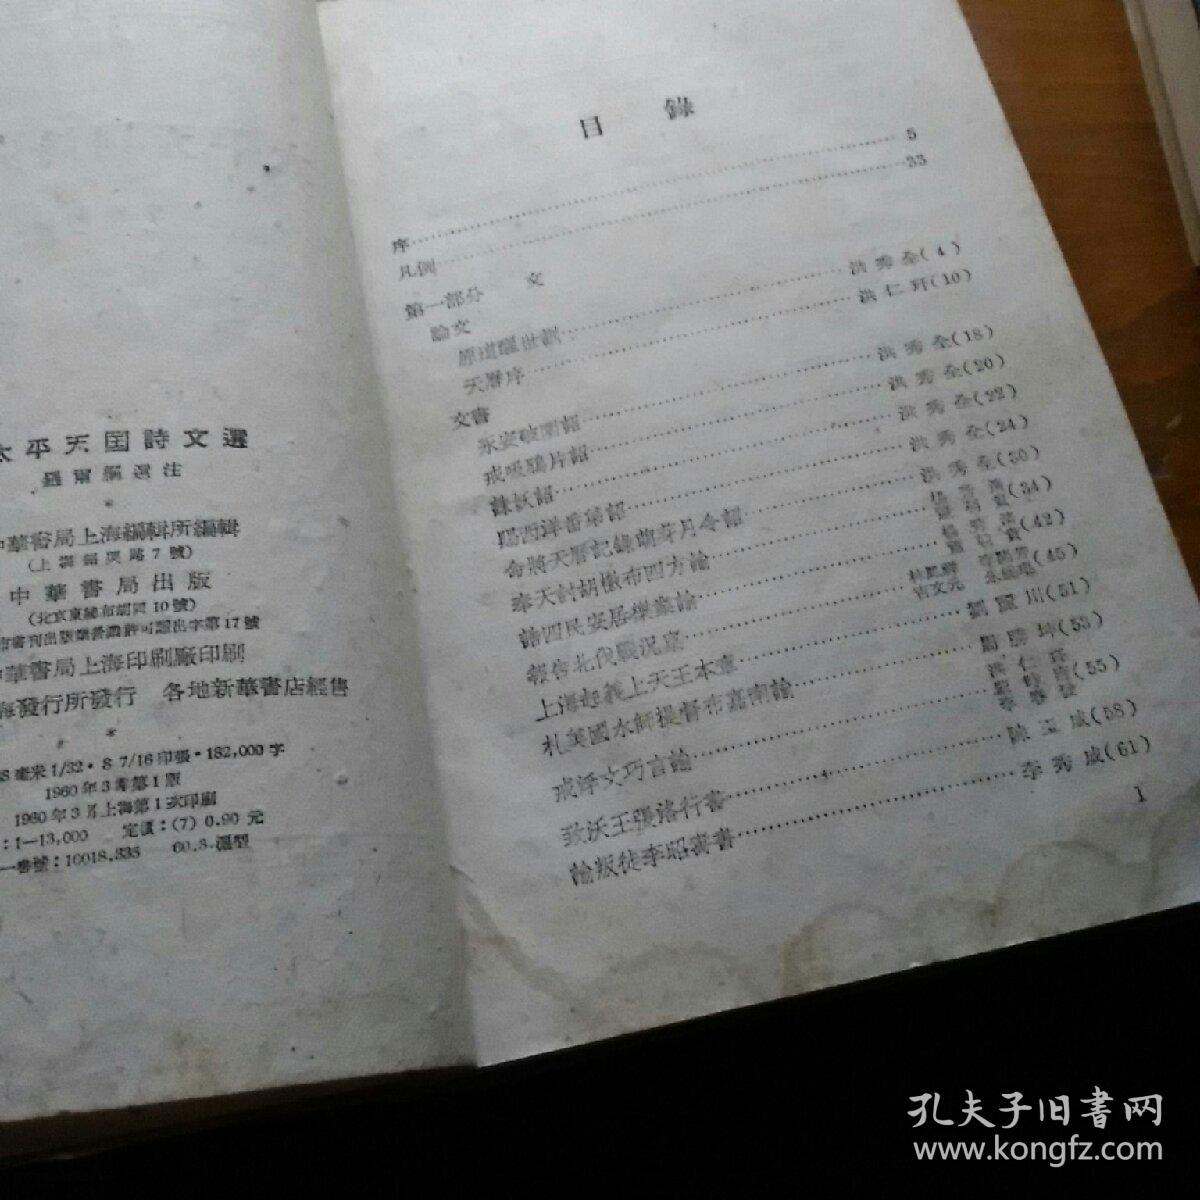 太平天囯詩文選
羅爾綱選注
*
中華書局上海編輯所編輯
(上海紹興路7號)
中華書局出版
(北京東總布胡同10號)
書刊出版業營業許可證出字第17號
中華書局上海印刷廠印刷
海發行所發行 各地新華書店經售
*
毫米1/32·8 7/16印張·182,000字
1960年3月第1版
1960年3月上海第1次印刷
:1—13,000 定價:(7) 0.90元
一書號:10018.335 60.3.滬型
目錄
序……5
凡例……33
第一部分 文
論文
原道醒世訓……洪秀全(4)
天曆序……洪仁玕(10)
文書
永安破圍詔……洪秀全(18)
戒吸鴉片詔……洪秀全(20)
誅妖詔……洪秀全(22)
賜西洋番弟詔……洪秀全(24)
命將天曆記錄萌芽月令詔……洪秀全(30)
奉天討胡檄布四方諭……楊秀清 蕭朝貴(34)
誥四民安居樂業諭……楊秀清 蕭朝貴(42)
報告北伐戰況稟……林鳳祥 李開芳 吉文元 朱錫琨(45)
上海起義上天王本章……劉麗川(51)
札美國水師提督布嘉南諭……羅勝坤(53)
戒浮文巧言諭……洪仁玕 蒙時雍 李春發(55)
致沃王張洛行書……陳玉成(58)
諭叛徒李昭壽書……李秀成(61)
1
孔夫子旧書网
www.kongfz.com